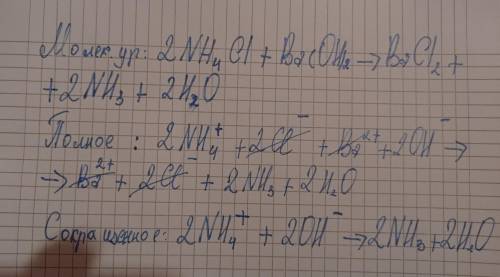 Молек. ур: 2NH₄Cl + Ba(OH)₂ → BaCl₂ +
+ 2NH₃ + 2H₂O
Полное : 2NH₄⁺ + 2Cl⁻ + Ba²⁺ + 2OH⁻ →
→ Ba²⁺ + 2Cl⁻ + 2NH₃ + 2H₂O
Сокращенное: 2NH₄⁺ + 2OH⁻ → 2NH₃ + 2H₂O